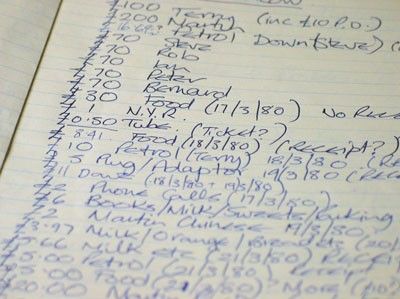 £100 Terry (inc £10 P.O.)
£200 Martin
£16.69½ Petrol Down (Steve)
£70 Steve
£70 Rob
£70 Ian
£70 Peter
£70 Bernard
£30 Food (17/3/80) No
£1 N.Y.R.
£0.50 Tube (Ticket?)
£8.41 Food (18/3/80) (receipt?)
£10 Petrol (Terry) 18/3/80
£5 Plug/Adaptor 19/3/80
£11 Dave (18/3/80 + 19/3/80)
£2 Phone Calls (17/3/80)
£6 Books/Milk/Sweets/Parking
£2 Martin Chinese 19/3/80
£3.97 Milk/Orange/Biscuits (20/
.66 Milk (21/3/80)
£5.00 Petrol etc (21/3/80) Receipt
£5.00 Food (21/3/80)
£20.00 Martin